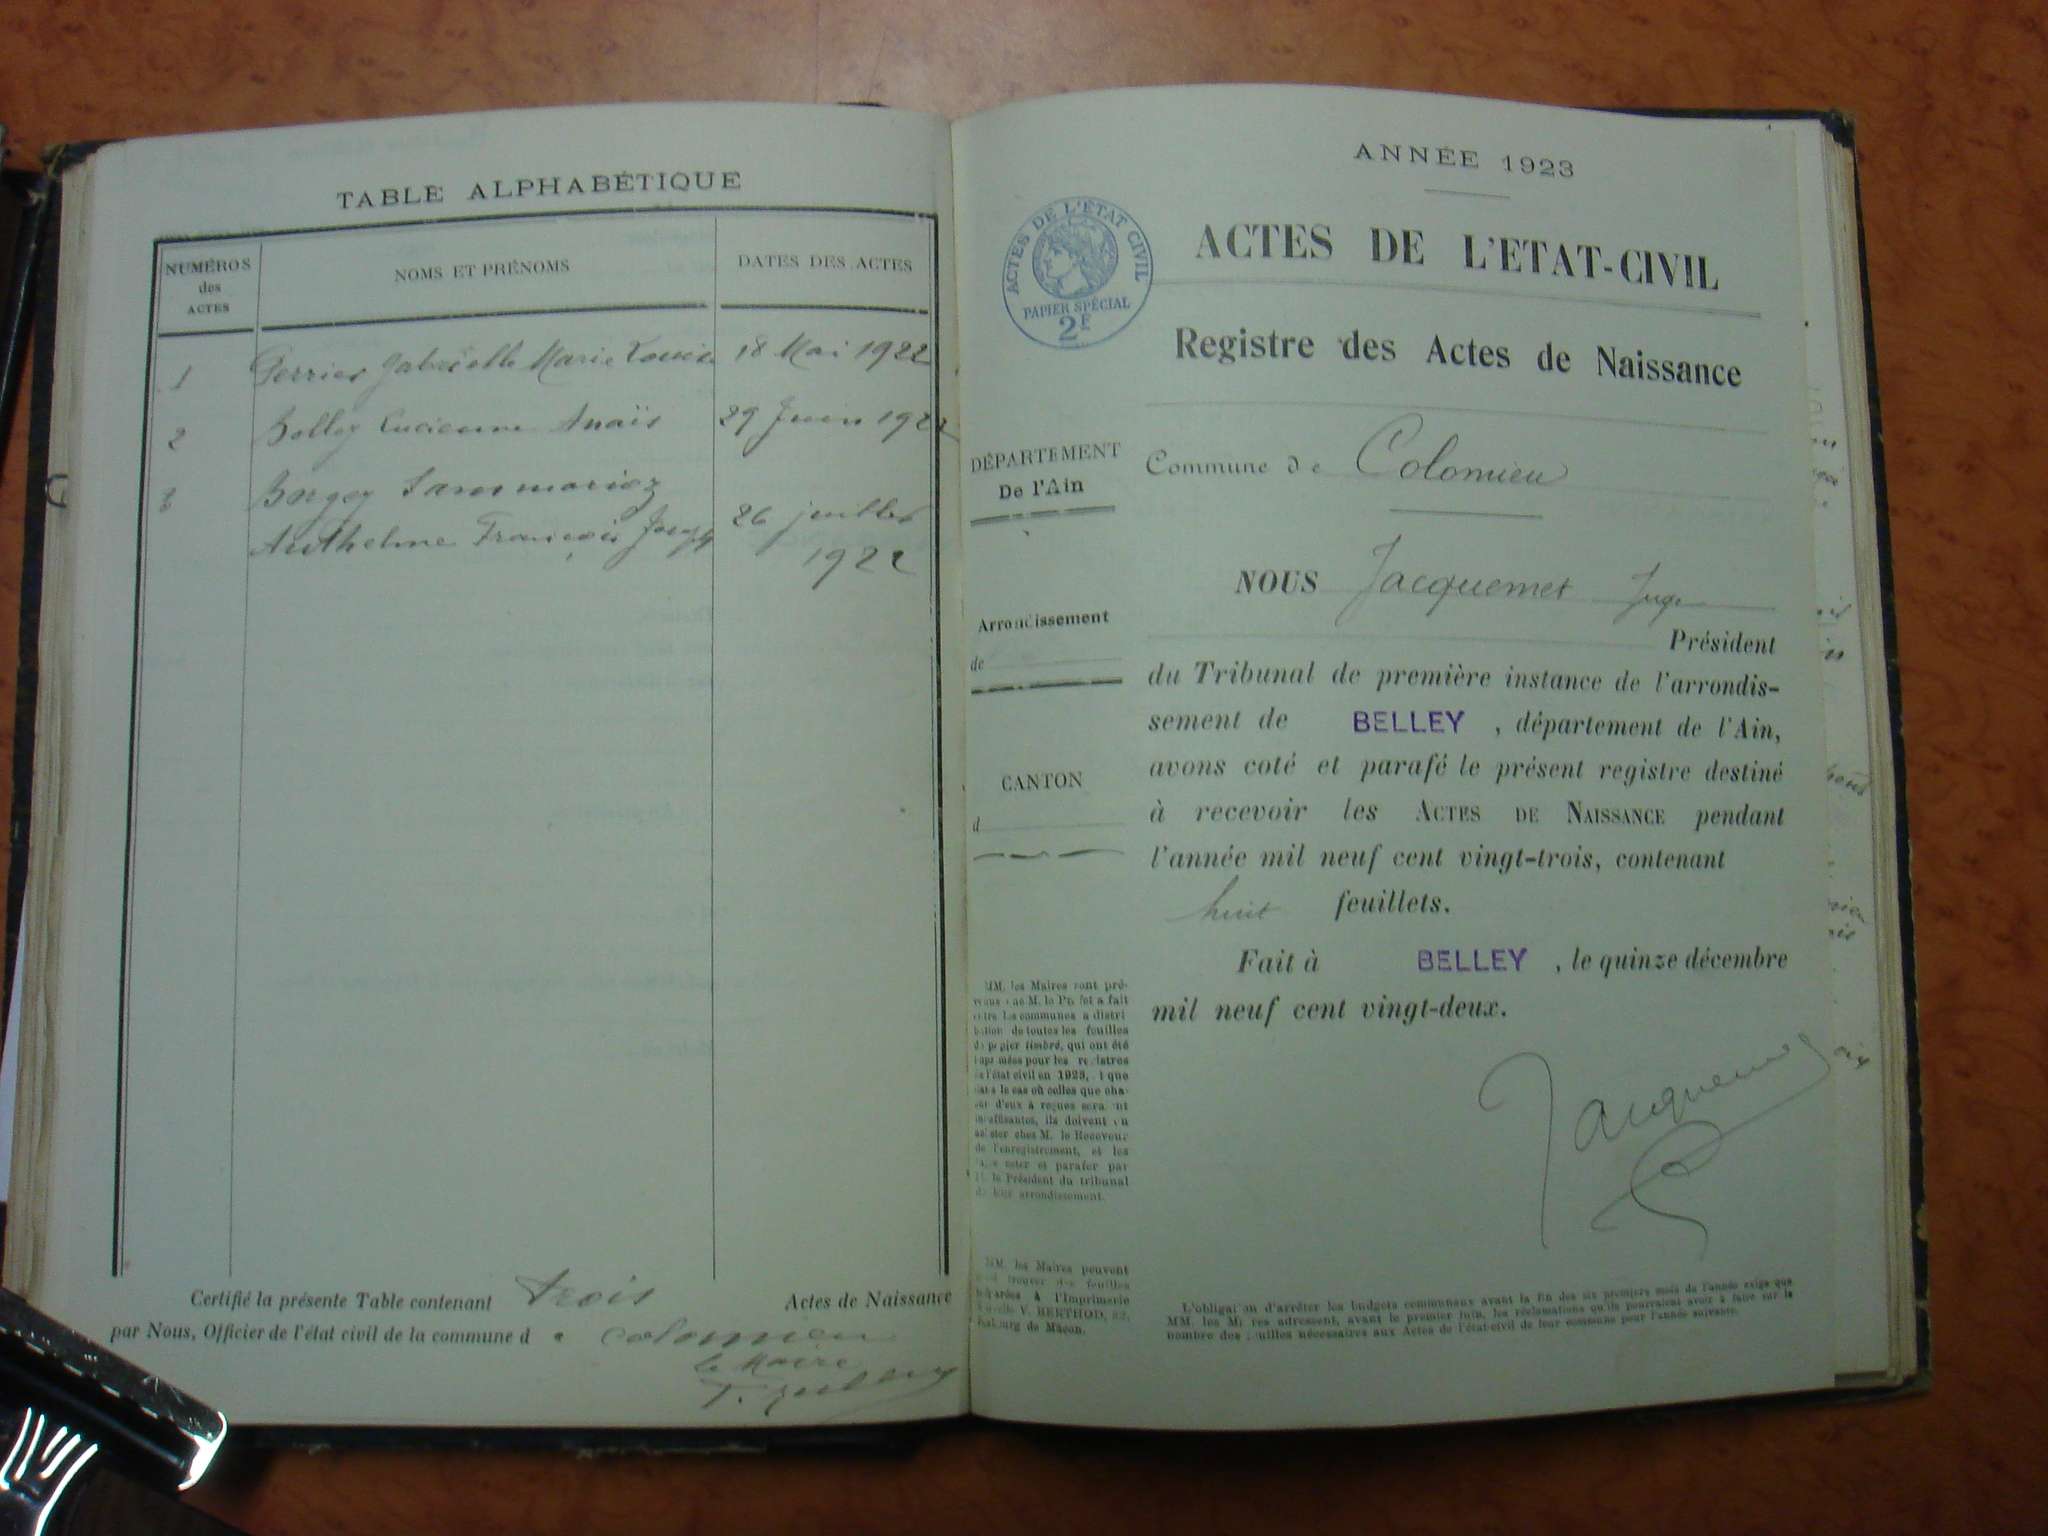 TABLE ALPHABÉTIQUE
NUMÉROS
des
ACTES
NOMS ET PRÉNOMS
DATES DES ACTES
1 Perrier Gabrielle Marie Louise 18 Mai 1922
2 Belley Lucienne Anaïs 29 Juin 1922
3 Borgey
Anthelme François Joseph 26 juillet
1922
Certifié la présente Table contenant trois Actes de Naissance
par Nous, Officier de l'état civil de la commune de Colomieu
le Maire
ANNÉE 1923
ACTES DE L'ÉTAT CIVIL
PAPIER SPÉCIAL
2F
ACTES DE L'ETAT-CIVIL
Registre des Actes de Naissance
DÉPARTEMENT
De l'Ain
Commune de Colomieu
NOUS Jacquemet Juge
Arrondissement
de
Président
du Tribunal de première instance de l'arrondis-
sement de BELLEY, département de l'Ain,
CANTON
d
avons coté et parafé le présent registre destiné
à recevoir les ACTES DE NAISSANCE pendant
l'année mil neuf cent vingt-trois, contenant
huit feuillets.
Fait à BELLEY, le quinze décembre
mil neuf cent vingt-deux.
Jacquemet
MM. les Maires sont pré-
venus que M. le Préfet a fait
entre les communes a distri
bution de toutes les feuilles
de papier timbré, qui ont été
imprimées pour les registres
de l'état civil en 1923, et que
dans le cas où celles que cha-
cun d'eux a reçues seraient
insuffisantes, ils doivent en
acheter chez M. le Receveur
de l'enregistrement, et les
faire coter et parafer par
M. le Président du tribunal
de leur arrondissement.
MM. les Maires peuvent
trouver des feuilles
à l'Imprimerie
V. BERTHOD,
de Mâcon.
L'obligation d'arrêter les budgets communaux avant la fin des six premiers mois de l'année exige que
MM. les Maires adressent, avant le premier juin, les réclamations qu'ils pourraient avoir à faire sur le
nombre des feuilles nécessaires aux Actes de l'état-civil de leur commune pour l'année suivante.